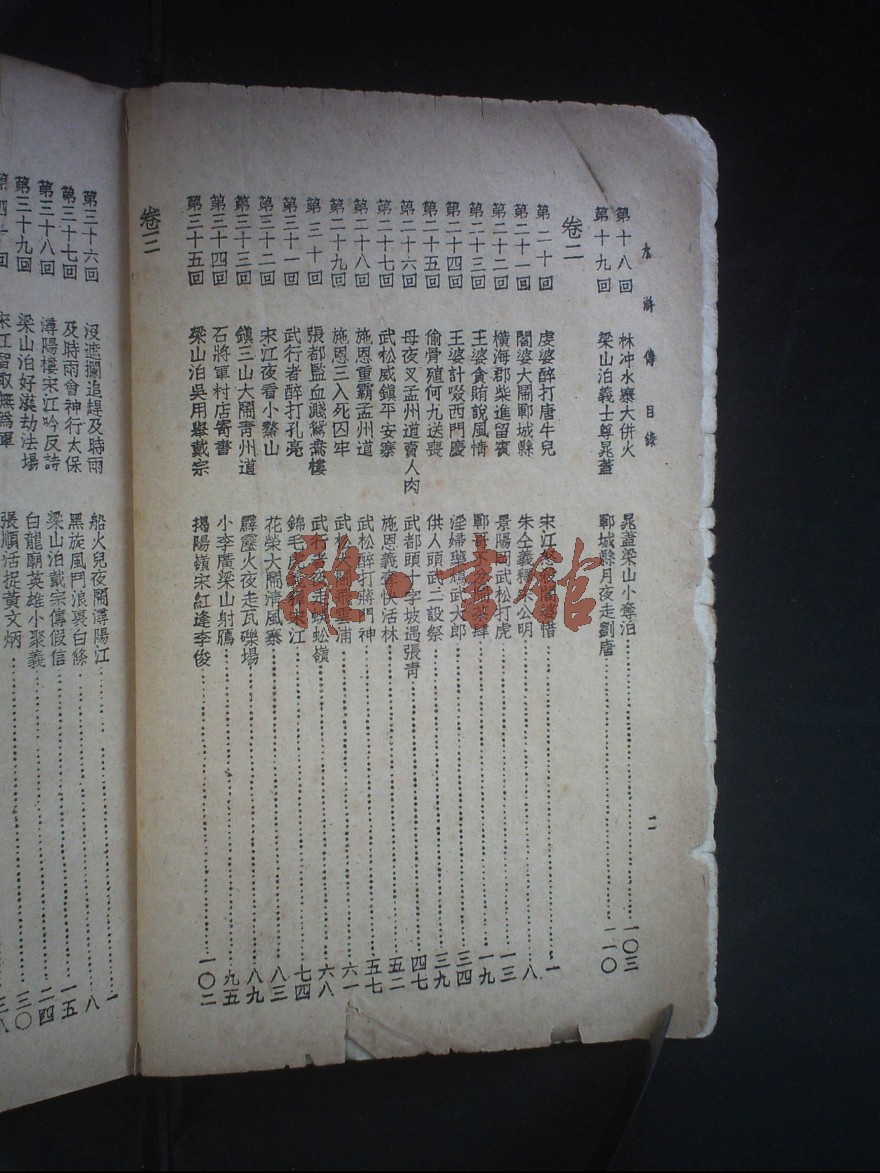 水滸傳目錄
二
第十八回 林冲水寨大併火 晁蓋梁山小奪泊 一〇三
第十九回 梁山泊義士尊晁蓋 鄆城縣月夜走劉唐 一一〇
卷二
第二十回 虔婆醉打唐牛兒 宋江怒殺閻婆惜 一
第二十一回 閻婆大鬧鄆城縣 朱仝義釋宋公明 八
第二十二回 橫海郡柴進留賓 景陽岡武松打虎 一三
第二十三回 王婆貪賄說風情 鄆哥不忿鬧茶肆 一九
第二十四回 王婆計啜西門慶 淫婦藥鴆武大郎 三四
第二十五回 偷骨殖何九送喪 供人頭武二設祭 三九
第二十六回 母夜叉孟州道賣人肉 武都頭十字坡遇張青 四七
第二十七回 武松威鎭平安寨 施恩義奪快活林 五二
第二十八回 施恩重霸孟州道 武松醉打蔣門神 五七
第二十九回 施恩三入死囚牢 武松大鬧飛雲浦 六一
第三十回 張都監血濺鴛鴦樓 武行者夜走蜈蚣嶺 六八
第三十一回 武行者醉打孔亮 錦毛虎義釋宋江 七四
第三十二回 宋江夜看小鰲山 花榮大鬧淸風寨 八三
第三十三回 鎭三山大鬧靑州道 霹靂火夜走瓦礫場 八九
第三十四回 石將軍村店寄書 小李廣梁山射鴈 九五
第三十五回 梁山泊吳用舉戴宗 揭陽嶺宋紅逢李俊 一〇二
卷三
第三十六回 沒遮攔追趕及時雨 船火兒夜鬧潯陽江 一
第三十七回 及時雨會神行太保 黑旋風鬥浪裏白條 八
第三十八回 潯陽樓宋江吟反詩 梁山泊戴宗傳假信 一五
第三十九回 梁山泊好漢劫法場 白龍廟英雄小聚義 二四
第四十回 宋江智取無爲軍 張順活捉黃文炳 三〇
三八
雅·書館